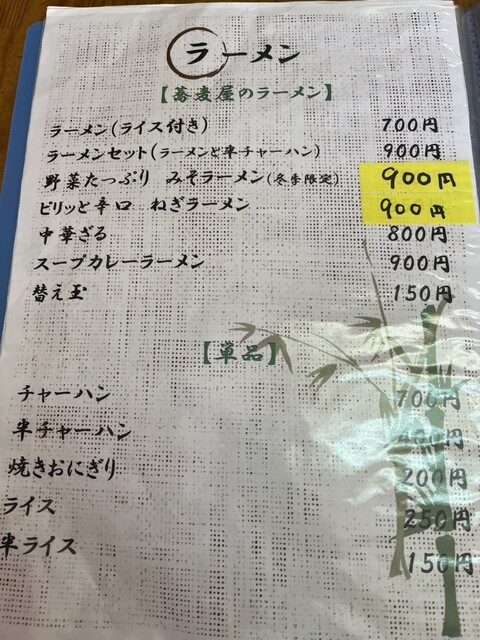 ラーメン
【蕎麦屋のラーメン】
ラーメン(ライス付き) 700円
ラーメンセット(ラーメンと半チャーハン) 900円
野菜たっぷり みそラーメン(冬季限定) 900円
ピリッと辛口 ねぎラーメン 900円
中華ざる 800円
スープカレーラーメン 900円
替え玉 150円
【単品】
チャーハン 700円
半チャーハン 400円
焼きおにぎり 200円
ライス 250円
半ライス 150円